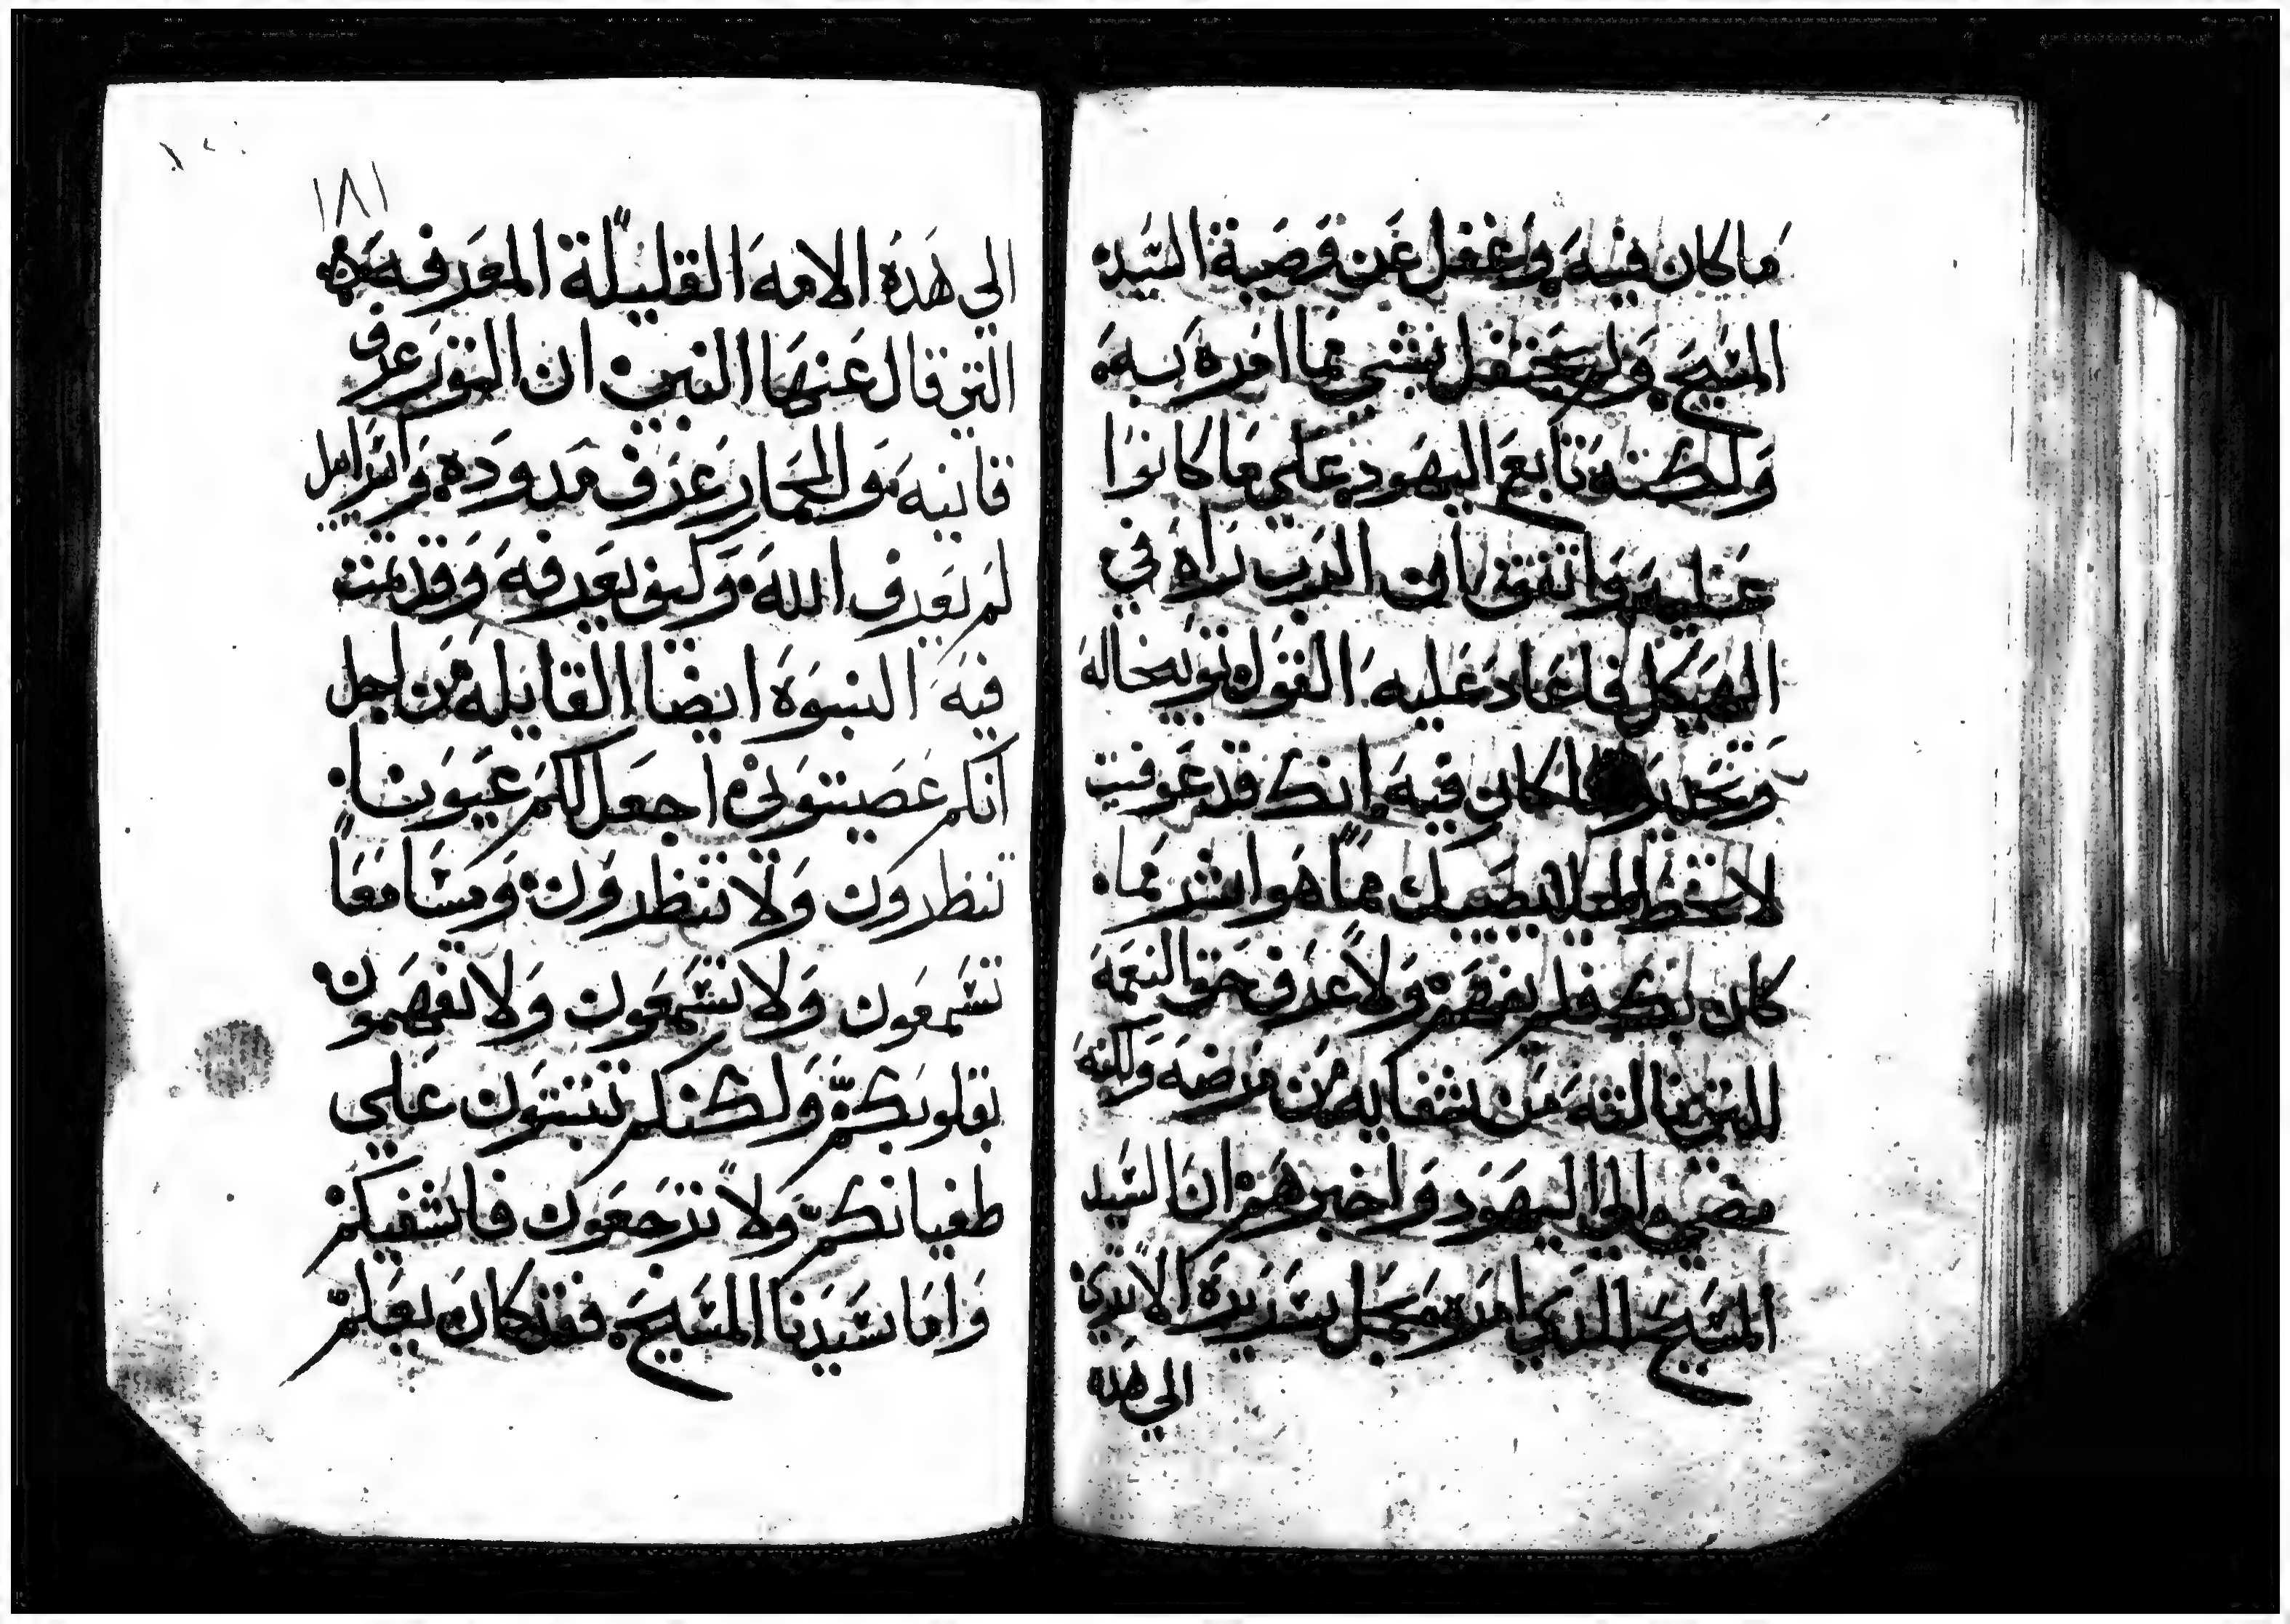 ما كان فيه واغفل عن وصية السيد
المسيح ولم يحتفل بشي مما امره به
ولكنه تابع اليهود علي ما كانوا
عليه واتفق بان الرب راه في
الهيكل فاعاد عليه القول توبيخا له
وتحذيرا كان فيه انك قد عوفيت
لا تخط ليلا يصيبك مما هو اشد مما
كان بك فلم يفهم ولا عرف حق النعمة
التي نالته من شفايه من مرضه ولكنه
مضي الي اليهود واخبرهم ان السيد
المسيح الذي امره بحمل سريره الا تري
الي هذه
١٨١
الي هذه الامه القليلة المعرفه
التي قال عنها النبي ان الثور عرف
قانيه والحمار عرف مدوده واسرايل
لم يعرف الله وكيف يعرفه وقد تمت
فيه النبوة ايضا القايله من اجل
انكم عصيتوني اجعل لكم عيونا
تنظرون ولا تنظرون ومسامعا
تسمعون ولا تسمعون ولا تفهمون
بقلوبكم ولكنكم تثبتون علي
طغيانكم ولا ترجعون فاشفيكم
واما سيدنا المسيح فقد كان يعلم